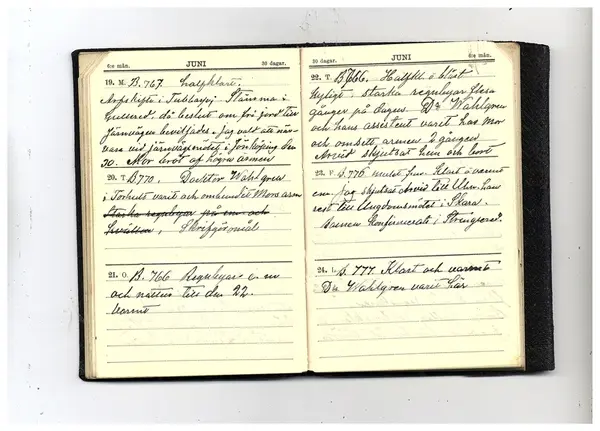 6:e mån. JUNI 30 dagar.
19. M. B. 767. halfklart.
Arfskifte i Tubbarp. Stämma i
Gullered då beslut om fri jord till
järnvägen beviljades. Jag valt att när-
vara vid järnvägsmötet i Jönköping den
30. Mor bröt af högra armen
20. T. B 770. Doktor Wahlgren
i varit och ombundit Mors arm
Starka regnbyar på em och
kvällen,
21. O. B. 766 Regnbyar e. m
och natten till den 22.
Varmt
6:e mån. JUNI 30 dagar.
22. T. B 766. Halfkl. o blåst
kyligt, starka regnbyar flera
gånger på Dagen. Dr Wahlgren
och hans assistent varit hos Mor
och omsett armen 2 gånger
Arvid skjutsat hem och bort
23. F. B. 776 Klart o varmt
em. Jag skjutsat Arvid till Uhn. han
rest till Ungdomsmötet i Skara.
Barnen konfirmerats i Strengsered.
24. L. B. 777. Klart och varmt
Dr Wahlgren varit här